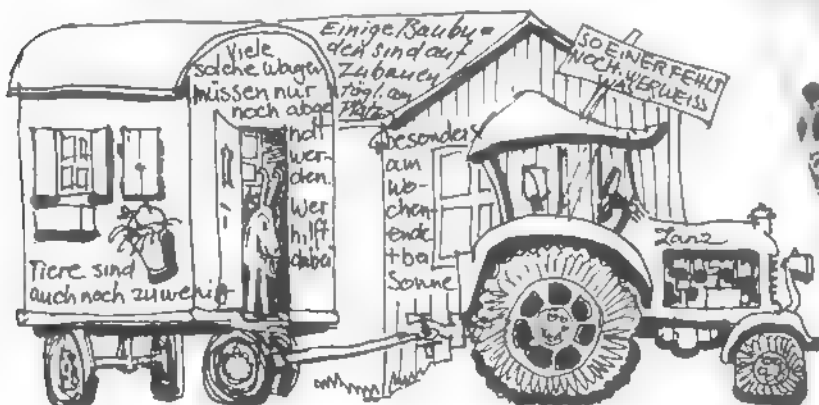 Viele
solche Wagen
müssen nur
noch abge
holt
wer-
den.
Wer
hilft
dabei
Tiere sind
auch noch zu wenig
Einige Baubu=
den sind auf
Zubauen
tägl. am
Platz
besonders
am
Wo-
chen-
ende
+ bei
Sonne
SO EINER FEHLT
NOCH. WER WEISS
WAS
Lanz